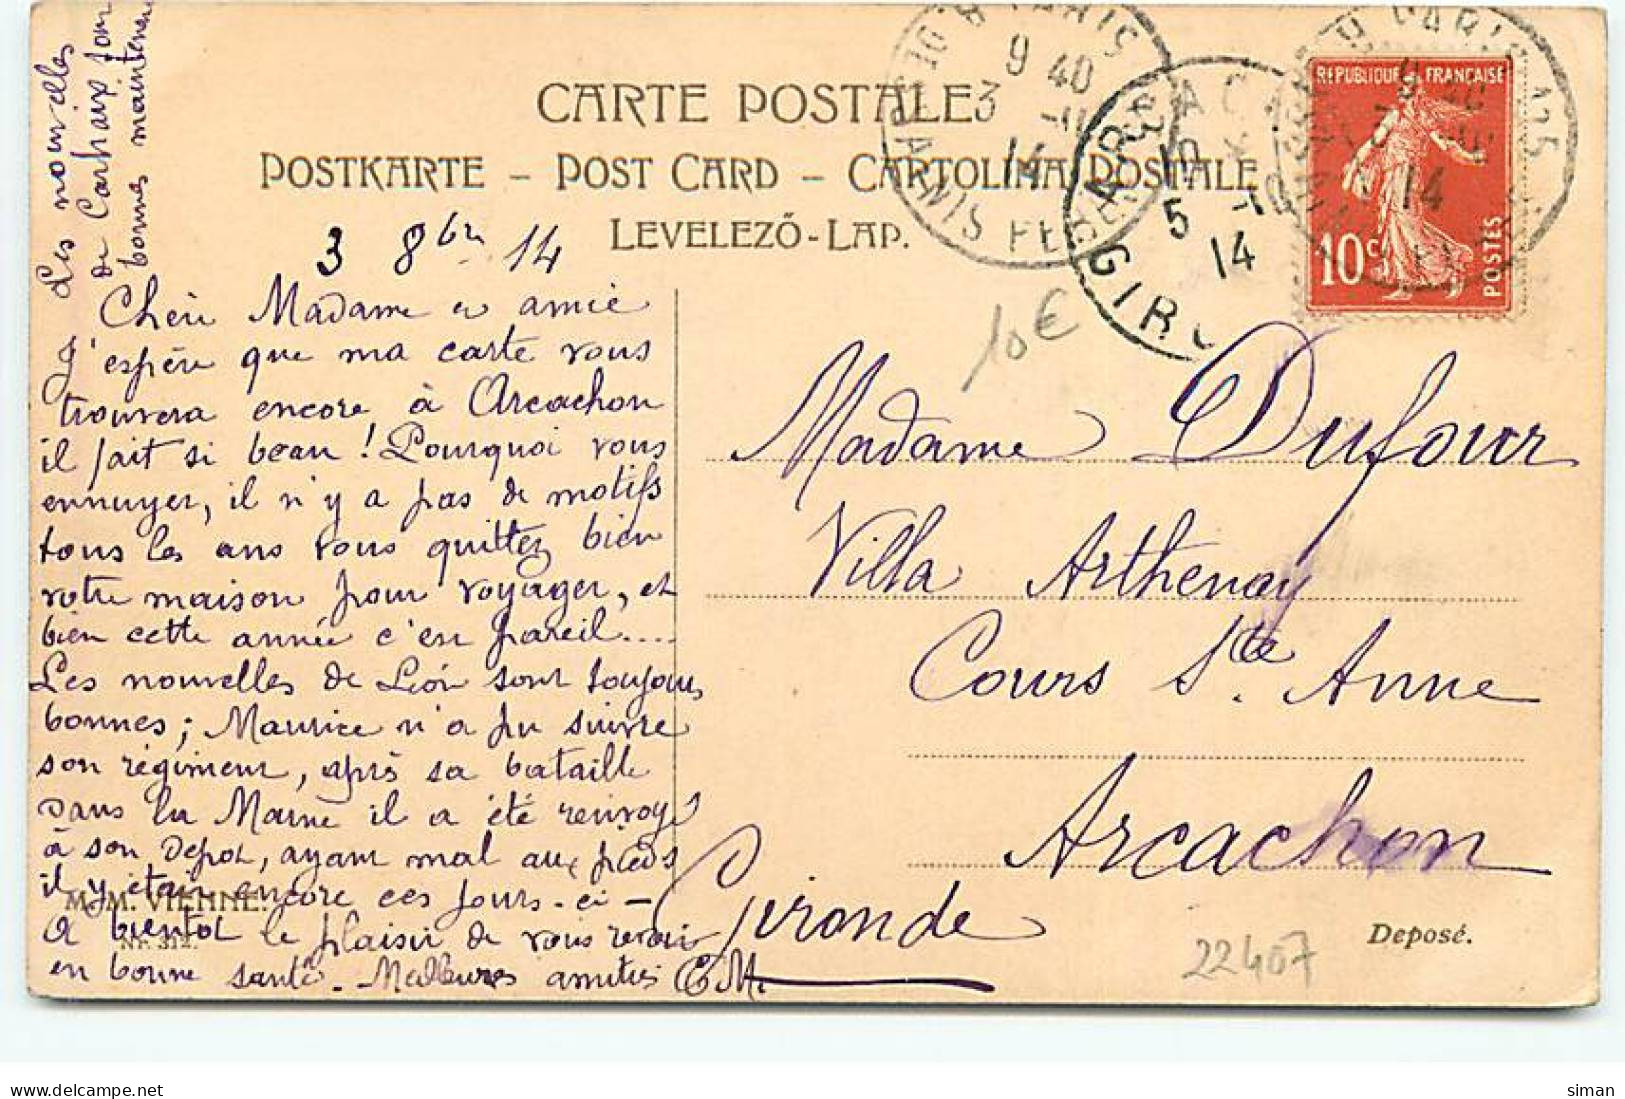 Les nouvelles
de Carhaix sont
bonnes maintenant
CARTE POSTALE
POSTKARTE – POST CARD – CARTOLINA POSTALE
LEVELEZŐ-LAP.
3 8bre 14
Chère Madame et amie
J'espère que ma carte vous
trouvera encore à Arcachon
il fait si beau ! Pourquoi vous
ennuyer, il n'y a pas de motifs
tous les ans vous quittez bien
votre maison pour voyager, et
bien cette année c'est pareil....
Les nouvelles de Léon sont toujours
bonnes ; Maurice n'a pu suivre
son régiment, après sa bataille
dans la Marne il a été renvoyé
à son Depot, ayant mal aux pieds
il y était encore ces jours-ci –
A bientot le plaisir de vous revoir
en bonne santé. Meilleures amitiés EM.
M. M. VIENNE.
Nr. 312.
REPUBLIQUE FRANÇAISE
10c
POSTES
9 40
3 -11
14
5
14
GIRO
10€
Madame Dufour
Villa Arthenay
Cours Ste Anne
Arcachon
Gironde
22407
Deposé.
delcampe.net
siman